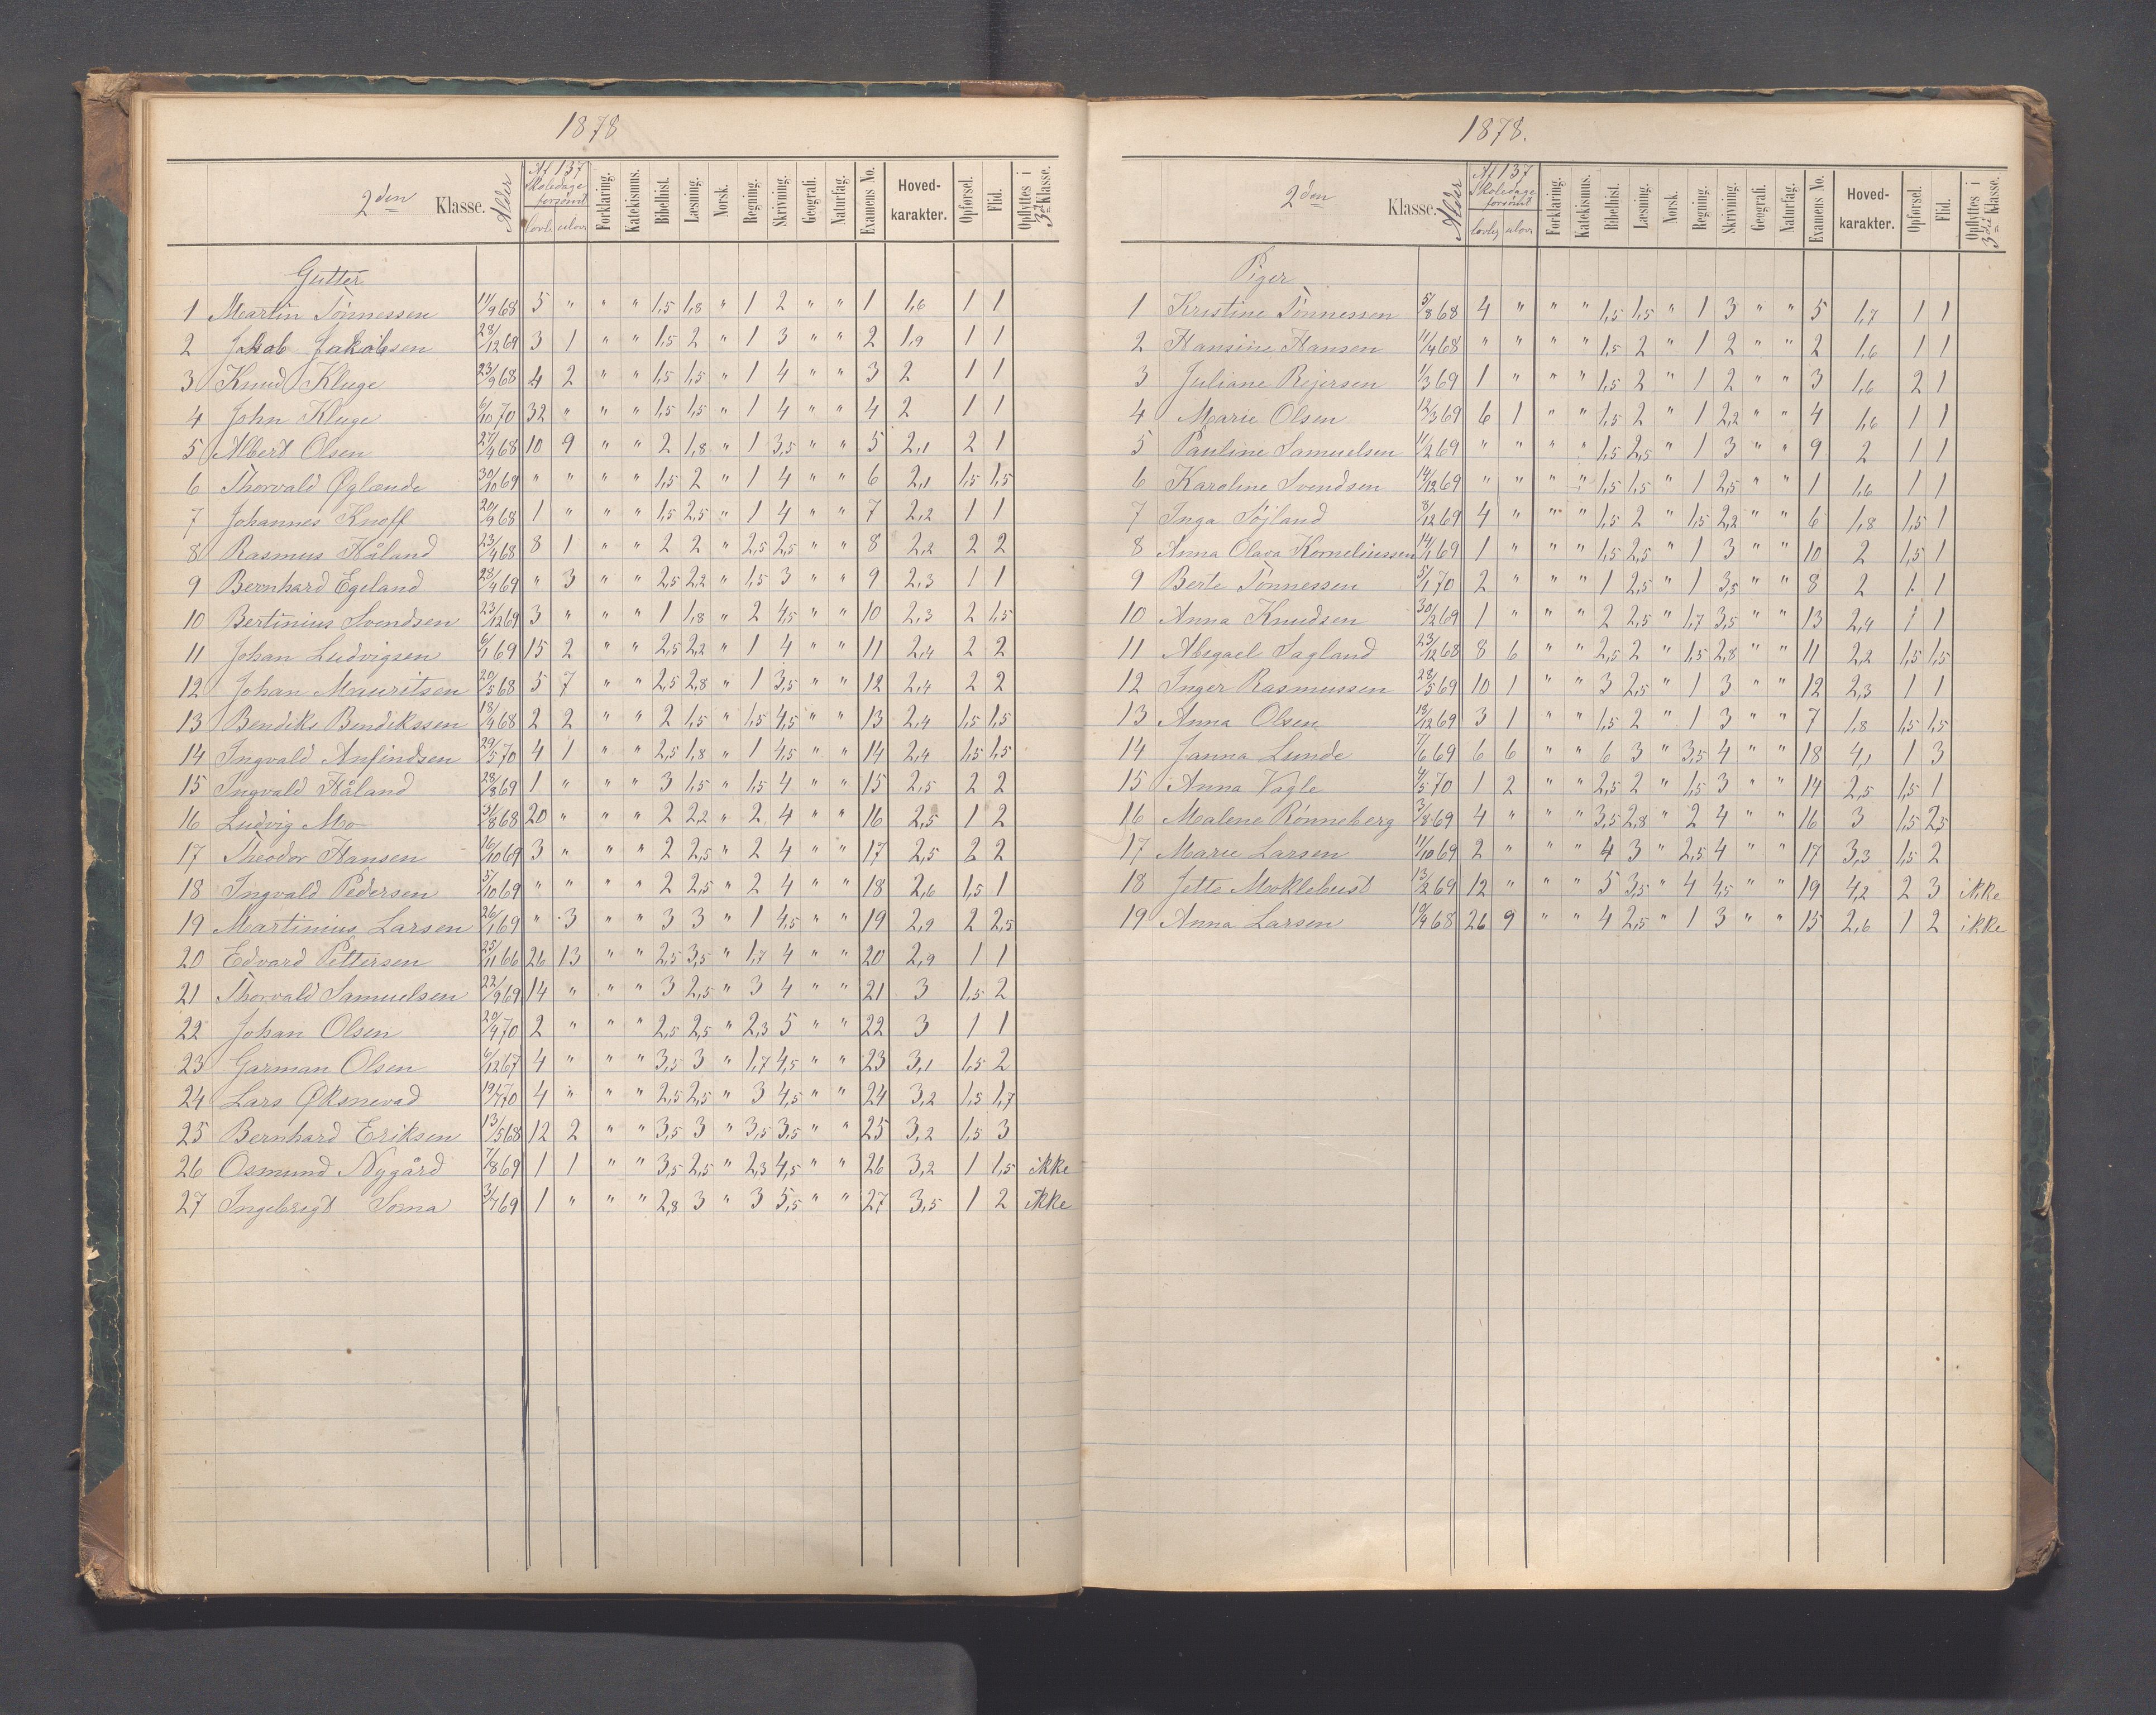 1878
2den Klasse. Alder Af 137 Skoledage forsømt lovl. ulovl. Forklaring. Katekismus. Bibelhist. Læsning. Norsk. Regning. Skrivning. Geografi. Naturfag. Examens No. Hoved-karakter. Opførsel. Flid. Opflyttes i 3die Klasse.
Gutter
1 Martin Tönnessen 11/9 68 5 " " " 1,5 1,8 " 1 2 " " 1 1,6 1 1
2 Jakob Jakobsen 28/12 69 3 1 " " 1,5 2 " 1 3 " " 2 1,9 1 1
3 Knud Kluge 23/9 68 4 2 " " 1,5 1,5 " 1 4 " " 3 2 1 1
4 John Kluge 6/10 70 32 " " " 1,5 1,5 " 1 4 " " 4 2 1 1
5 Albert Olsen 27/4 68 10 9 " " 2 1,8 " 1 3,5 " " 5 2,1 2 1
6 Thorvald Øglænde 30/10 69 " " " " 1,5 2 " 1 4 " " 6 2,1 1,5 1,5
7 Johannes Knoff 20/9 68 1 " " " 1,5 2,5 " 1 4 " " 7 2,2 1 1
8 Rasmus Håland 23/4 68 8 1 " " 2 2 " 2,5 2,5 " " 8 2,2 2 2
9 Bernhard Egeland 28/4 69 " 3 " " 2,5 2,2 " 1,5 3 " " 9 2,3 1 1
10 Bertinius Svendsen 23/12 69 3 " " " 1 1,8 " 2 4,5 " " 10 2,3 2 1,5
11 Johan Ludvigsen 6/1 69 15 2 " " 2,5 2,2 " 1 4 " " 11 2,4 2 2
12 Johan Mauritsen 20/5 68 5 7 " " 2,5 2,8 " 1 3,5 " " 12 2,4 2 2
13 Bendiks Bendikssen 18/4 68 2 2 " " 2 1,5 " 1,5 4,5 " " 13 2,4 1,5 1,5
14 Ingvald Anfindsen 29/5 70 4 1 " " 2,5 1,8 " 1 4,5 " " 14 2,4 1,5 1,5
15 Ingvald Håland 28/8 69 1 " " " 3 1,5 " 1,5 4 " " 15 2,5 2 2
16 Ludvig Mo 31/8 68 20 " " " 2 2,2 " 2 4 " " 16 2,5 1 2
17 Theodor Hansen 16/10 69 3 " " " 2 2,5 " 2 4 " " 17 2,5 2 2
18 Ingvald Pedersen 5/10 69 " " " " 2 2,5 " 2 4 " " 18 2,6 1,5 1
19 Martinius Larsen 26/1 69 " 3 " " 3 3 " 1 4,5 " " 19 2,9 2 2,5
20 Edvard Pettersen 25/11 66 26 13 " " 2,5 3,5 " 1,7 4 " " 20 2,9 1 1
21 Thorvald Samuelsen 22/9 69 14 " " " 3 2,5 " 3 4 " " 21 3 1,5 2
22 Johan Olsen 20/4 70 2 " " " 2,5 2,5 " 2,3 5 " " 22 3 1 1
23 Garman Olsen 6/12 67 4 " " " 3,5 3 " 1,7 4,5 " " 23 3,1 1,5 2
24 Lars Øksnevad 19/4 70 4 " " " 2,5 2,5 " 3 4,5 " " 24 3,2 1,5 1,7
25 Bernhard Eriksen 13/5 68 12 2 " " 3,5 3 " 3,5 3,5 " " 25 3,2 1,5 3
26 Osmund Nygård 7/8 69 1 1 " " 3,5 2,5 " 2,3 4,5 " " 26 3,2 1 1,5 ikke
27 Ingebrigt Soma 3/4 69 1 " " " 2,8 3 " 3 5,5 " " 27 3,5 1 2 ikke
1878.
2den Klasse. Alder Af 137 Skoledage forsømt lovlig ulovl. Forklaring. Katekismus. Bibelhist. Læsning. Norsk. Regning. Skrivning. Geografi. Naturfag. Examens No. Hoved-karakter. Opførsel. Flid. Opflyttes i 3die Klasse.
Piger
1 Kristine Tönnessen 5/8 68 4 " " " 1,5 1,5 " 1 3 " " 5 1,7 1 1
2 Hansine Hansen 11/4 68 " " " " 1,5 2 " 1 2 " " 2 1,6 1 1
3 Juliane Rejersen 1/3 69 1 " " " 1,5 2 " 1 2 " " 3 1,6 2 1
4 Marie Olsen 12/3 69 6 1 " " 1,5 2 " 1 2,2 " " 4 1,6 1 1
5 Pauline Samuelsen 11/2 69 " " " " 1,5 2,5 " 1 3 " " 9 2 1 1
6 Karoline Svendsen 14/12 69 " " " " 1,5 1,5 " 1 2,5 " " 1 1,6 1 1
7 Inga Söjland 8/12 69 4 " " " 1,5 2 " 1,5 2,2 " " 6 1,8 1,5 1
8 Anna Olava Korneliussen 14/1 69 1 " " " 1,5 2,5 " 1 3 " " 10 2 1,5 1
9 Berte Tönnessen 5/1 70 2 " " " 1 2,5 " 1 3,5 " " 8 2 1 1
10 Anna Knudsen 30/2 69 1 " " " 2 2,5 " 1,7 3,5 " " 13 2,4 1 1
11 Abigael Sagland 23/12 68 8 6 " " 2,5 2 " 1,5 2,8 " " 11 2,2 1,5 1,5
12 Inger Rasmussen 28/5 69 10 1 " " 3 2,5 " 1 3 " " 12 2,3 1 1
13 Anna Olsen 18/12 69 3 1 " " 1,5 2 " 1 3 " " 7 1,8 1,5 1,5
14 Janna Lunde 7/6 69 6 6 " " 6 3 " 3,5 4 " " 18 4,1 1 3
15 Anna Vagle 4/5 70 1 2 " " 2,5 2 " 1,5 3 " " 14 2,5 1,5 1
16 Malene Rönneberg 3/8 69 4 " " " 3,5 2,8 " 2 4 " " 16 3 1,5 2,5
17 Marie Larsen 11/10 69 2 " " " 4 3 " 2,5 4 " " 17 3,3 1,5 2
18 Jette Moklebust 13/2 69 12 " " " 5 3,5 " 4 4,5 " " 19 4,2 2 3 ikke
19 Anna Larsen 10/4 68 26 9 " " 4 2,5 " 1 3 " " 15 2,6 1 2 ikke